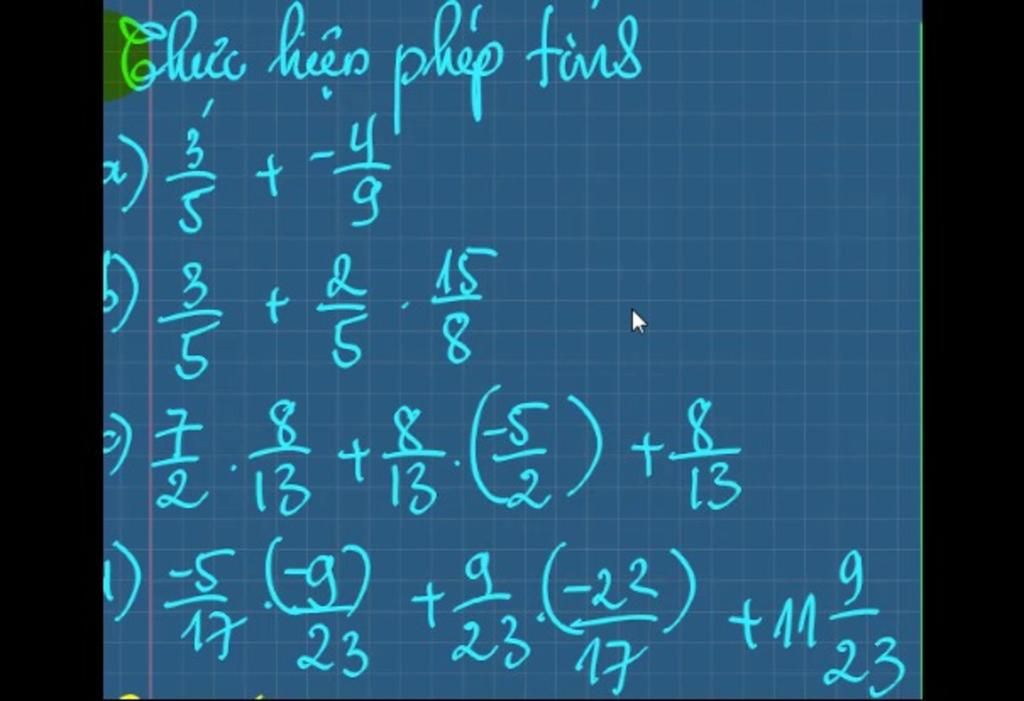 Thực hiện phép tính
a) 3/5 + -4/9
b) 3/5 + 2/5 . 15/8
c) 7/2 . 8/13 + 8/13 . (-5/2) + 8/13
d) -5/17 . (-9)/23 + 9/23 . (-22)/17 + 11 9/23